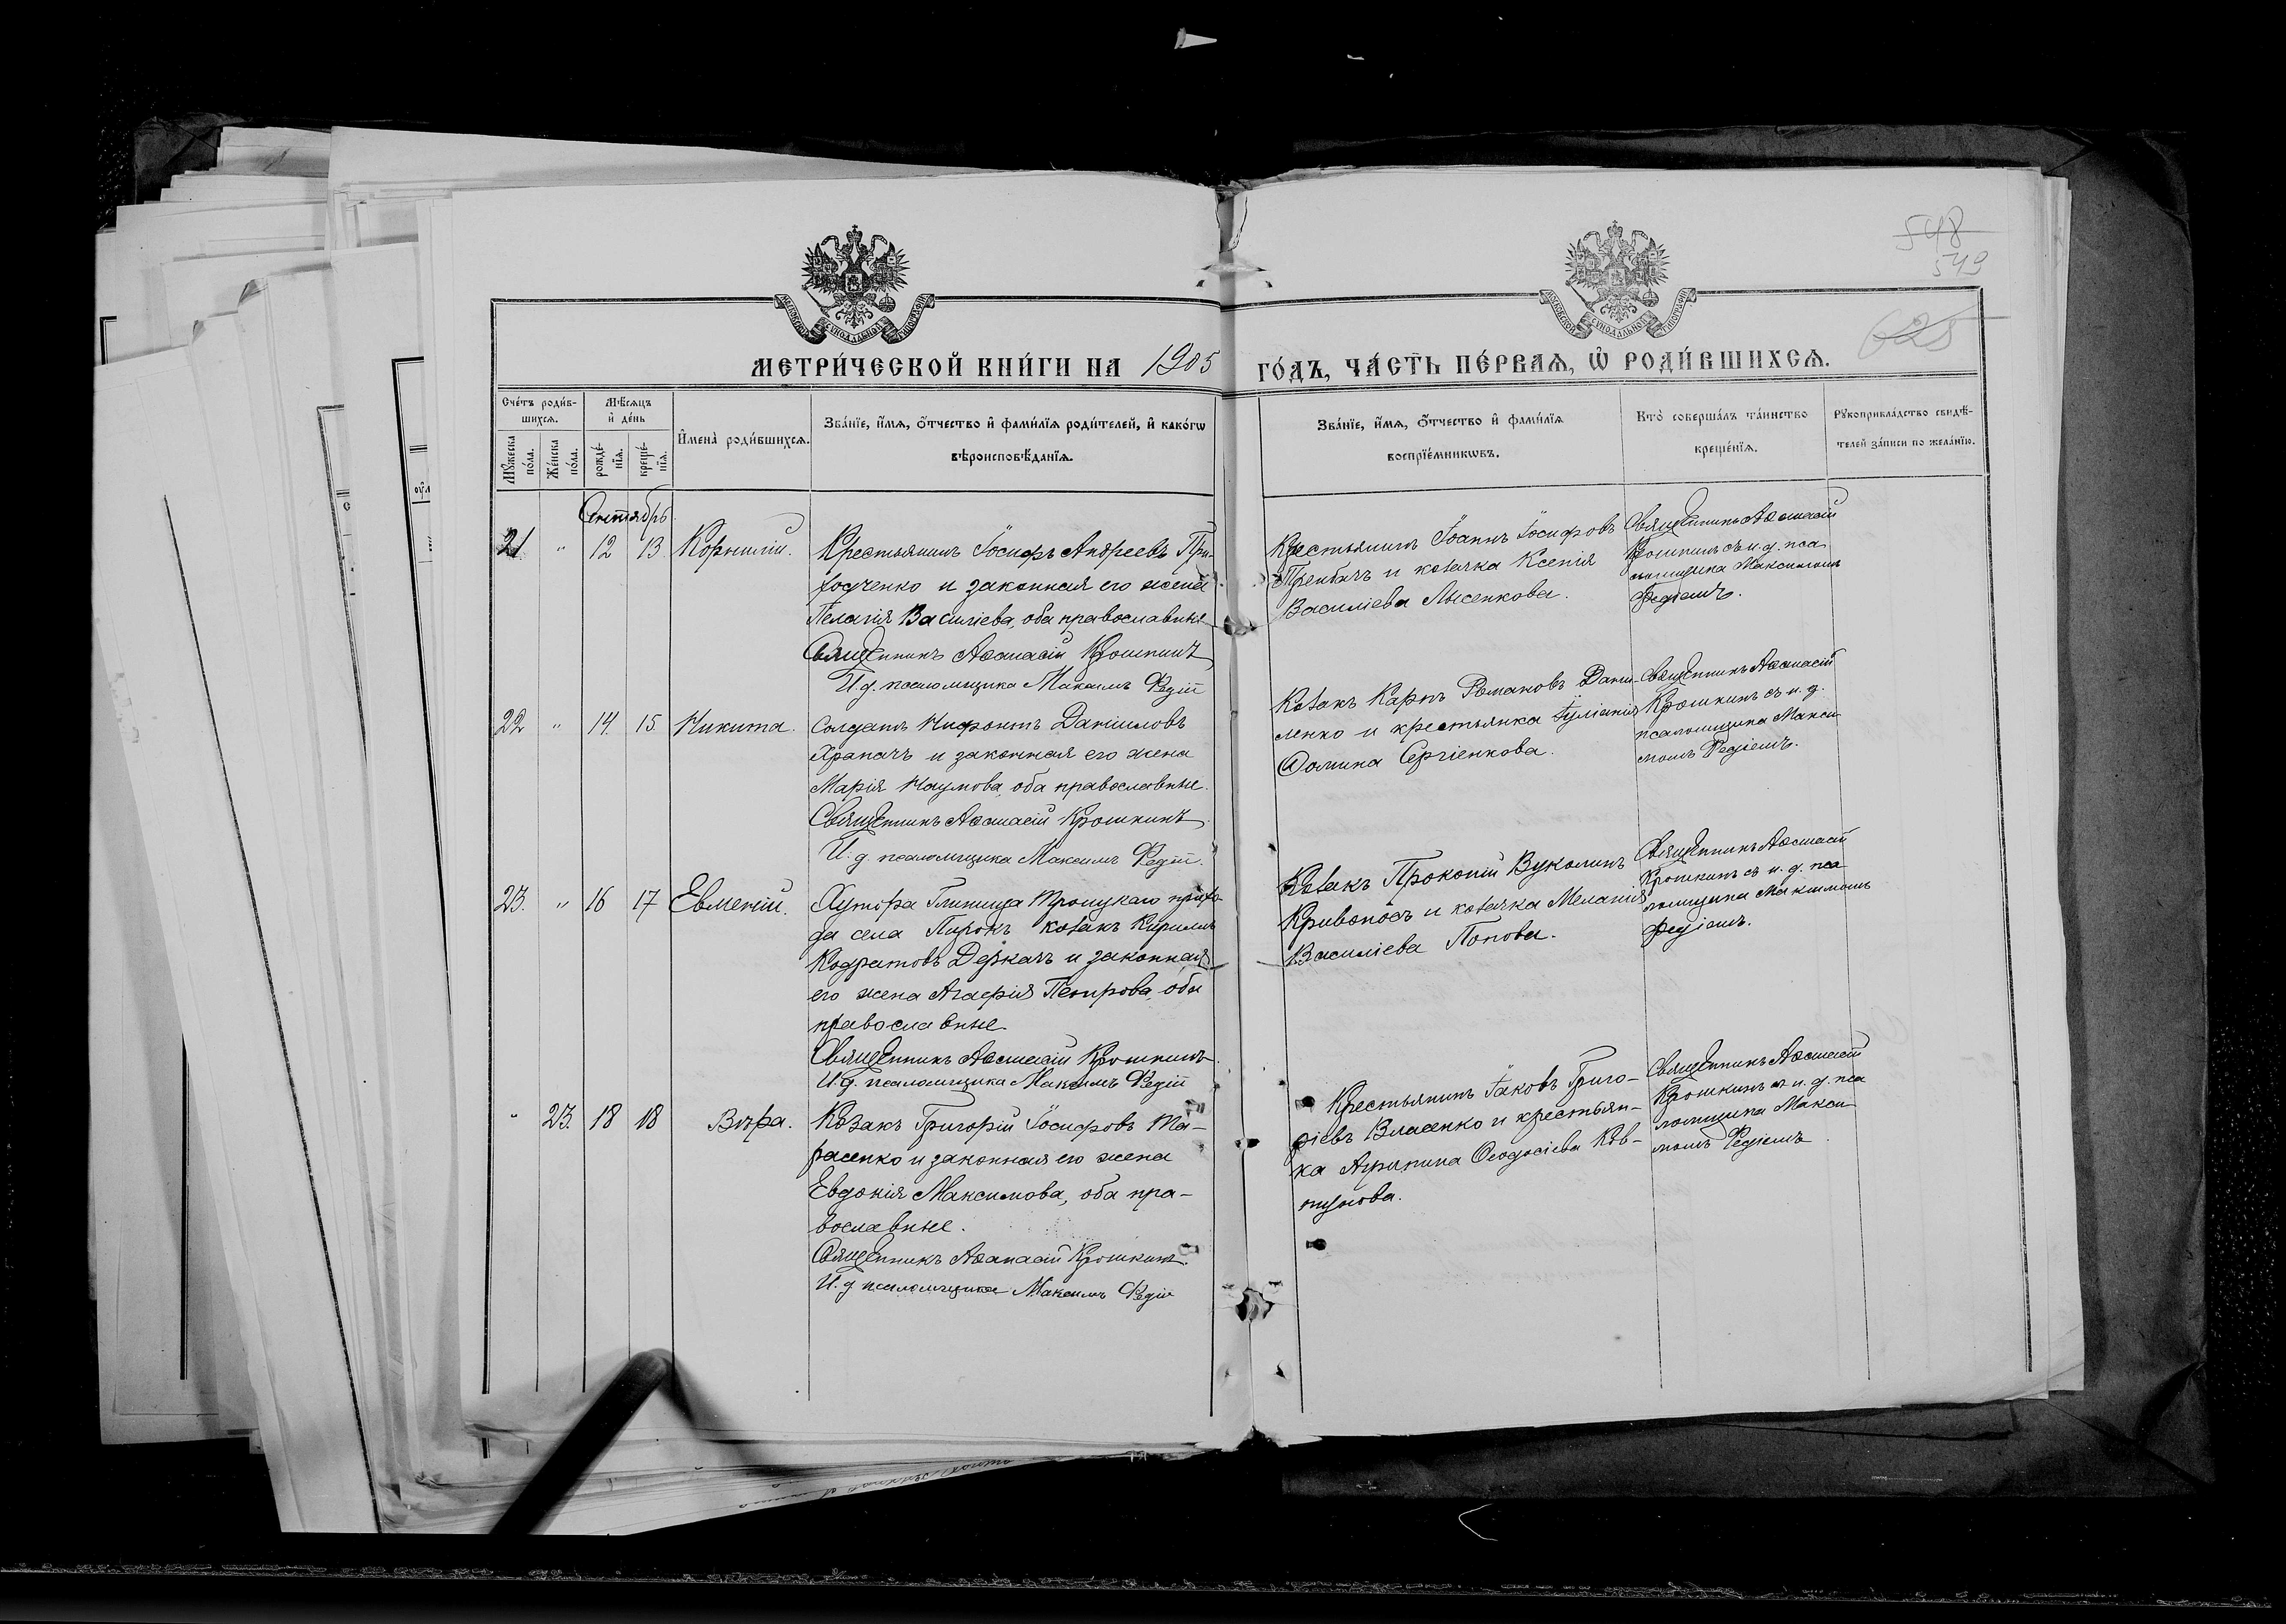 548
549
625
МОСКОВСКОЙ СѴНОДАЛЬНОЙ ТИПОГРАФІИ
МОСКОВСКОЙ СѴНОДАЛЬНОЙ ТИПОГРАФІИ
МЕТРИ́ЧЕСКОЙ КНИ́ГИ НА 1905 ГО́ДЪ, ЧА́СТЬ ПЕ́РВАѦ, Ѡ РОДИ́ВШИХСѦ.
Сче́тъ роди́в-
шихсѧ.
Мꙋ́жеска
по́ла.
Же́нска
по́ла.
Мѣ́сѧцъ
и де́нь
рожде́-
нїѧ.
креще́-
нїѧ.
Имена̀ роди́вшихсѧ.
Зва́нїе, и́мѧ, о́тчество и фами́лїѧ роди́телей, и како́гѡ
вѣроисповѣ́данїѧ.
Зва́нїе, и́мѧ, о́тчество и фами́лїѧ
воспрїе́мникѡвъ.
Кто̀ соверша́лъ та́инство
креще́нїѧ.
Рꙋкоприкла́дство свидѣ́-
телей за́писи по жела́нїю.
Сентябрь
21 " 12 13 Корнилій.
Крестьянинъ Іосифъ Андреевъ При-
ходченко и законная его жена
Пелагія Василіева, оба православные
Священникъ Аѳанасій Крошкинъ
И. д. псаломщика Максимъ Федій
Крестьянинъ Іоаннъ Іосифовъ
Требачъ и козачка Ксенія
Василіева Лысенкова.
Священникъ Аѳанасій
Крошкинъ съ и. д. пса-
ломщика Максимомъ
Федіемъ.
22 " 14 15 Никита.
Солдатъ Нифонтъ Даніиловъ
Храпачъ и законная его жена
Марія Наумова, оба православные.
Священникъ Аѳанасій Крошкинъ
И. д. псаломщика Максимъ Федій.
Козакъ Карпъ Романовъ Дани-
ленко и крестьянка Іуліанія
Ѳомина Сергіенкова.
Священникъ Аѳанасій
Крошкинъ съ и. д.
псаломщика Макси-
момъ Федіемъ.
23. " 16 17 Евменій.
Хутора Глинища Троицкаго прихо-
да села Пирокъ козакъ Кириллъ
Кодратовъ Деркачъ и законная
его жена Агафія Петрова, оба
православные.
Священникъ Аѳанасій Крошкинъ.
И. д. псаломщика Максимъ Федій
Козакъ Прокопій Вуколинъ
Кривоносъ и козачка Меланія
Василіева Попова.
Священникъ Аѳанасій
Крошкинъ съ и. д. пса-
ломщика Максимомъ
Федіемъ.
" 23. 18 18 Вѣра.
Козакъ Григорій Іосифовъ Та-
расенко и законная его жена
Евдокія Максимова, оба пра-
вославные.
Священникъ Аѳанасій Крошкинъ.
И. д. псаломщика Максимъ Федій
Крестьянинъ Іаковъ Григо-
ріевъ Власенко и крестьян-
ка Агрипина Ѳеодосіева Ков-
тунова.
Священникъ Аѳанасій
Крошкинъ съ и. д. пса-
ломщика Макси-
момъ Федіемъ.